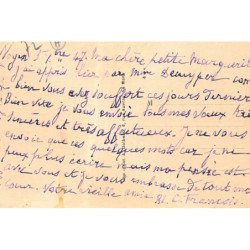 ma chère petite Marguerite
j'ai appris hier par Mme
bien vous avez souffert ces jours derniers
Bien vite je vous envoie tous mes vœux très
sincères et très affectueux. Je ne vous
envoie que ces quelques mots car je ne
peux plus écrire mais ma pensée est
avec vous et je vous embrasse de tout mon
cœur. Votre vieille amie